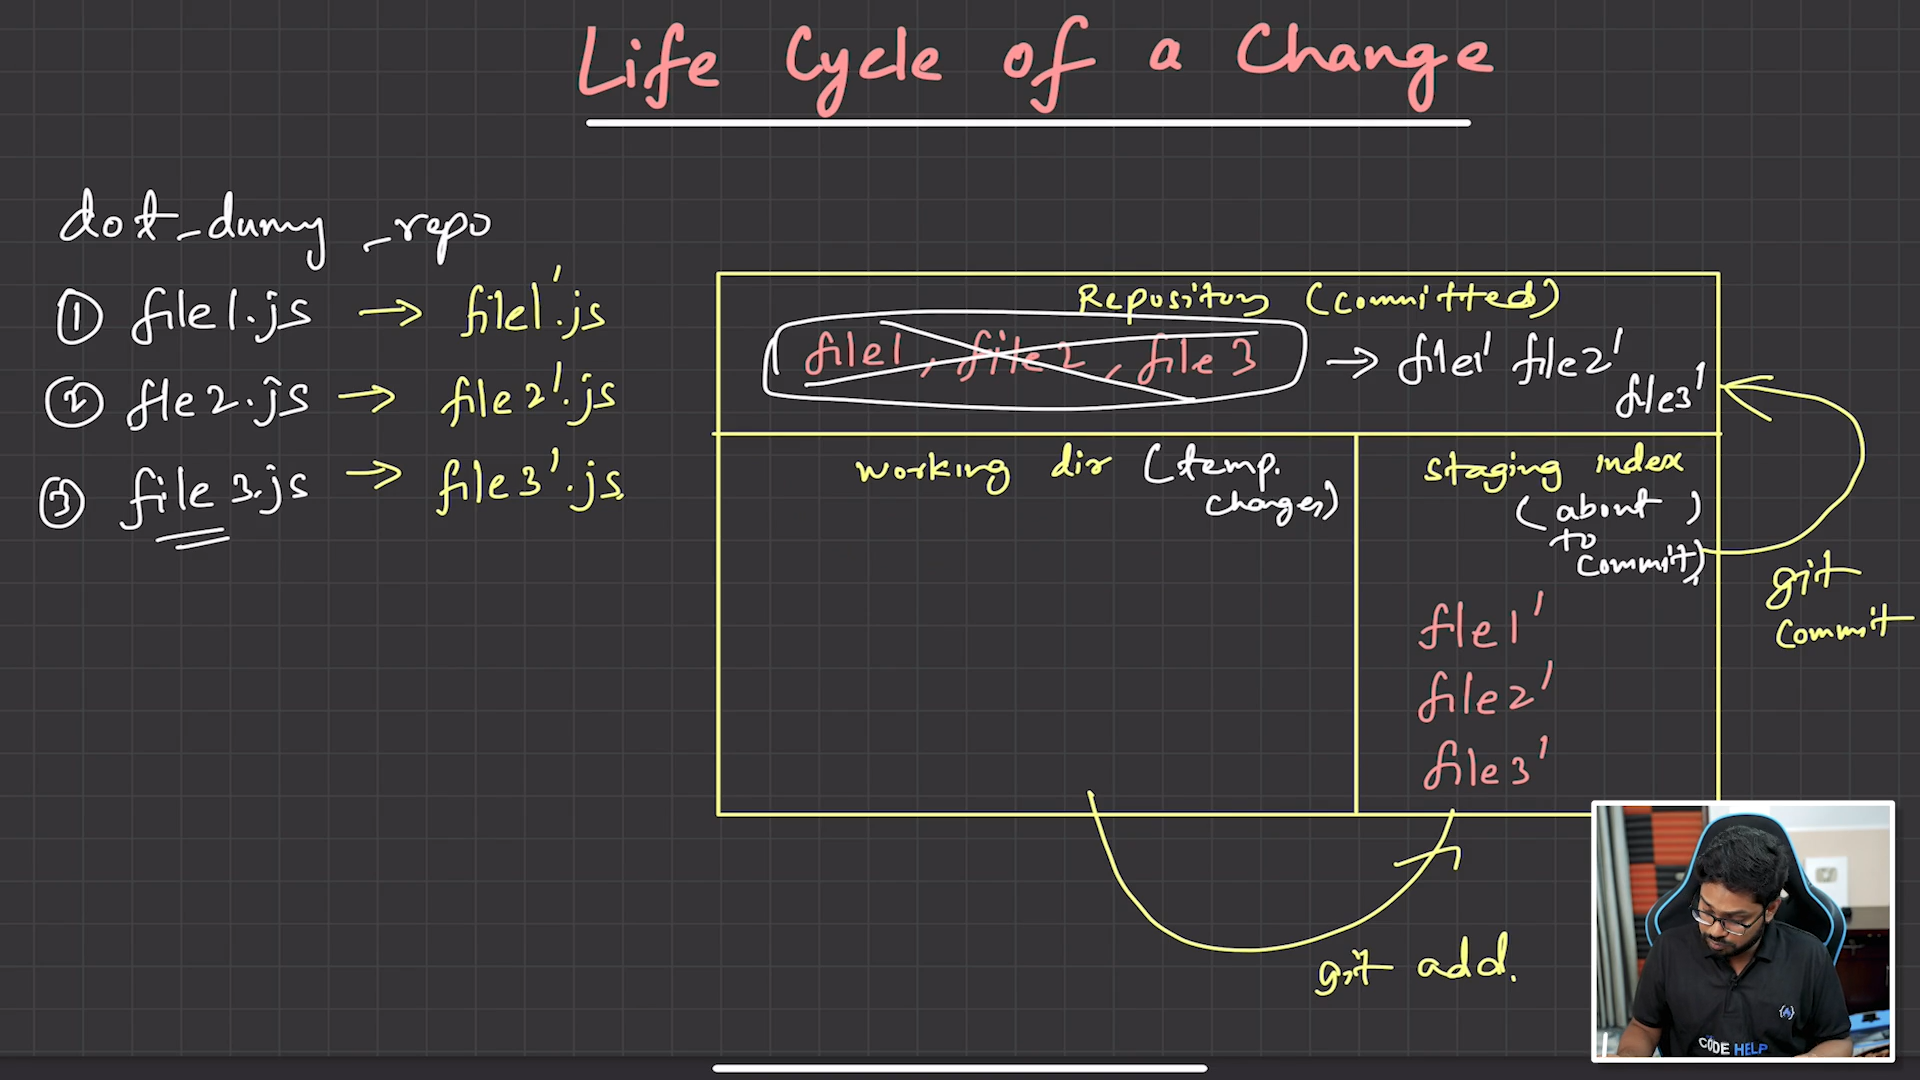 Life Cycle of a Change
dot_dumy_repo
① file1.js → file1'.js
② fle2.js → file2'.js
③ file3.js → file3'.js
Repository (committed)
file1, file2, file3 → file1' file2'
file3'
working dir (temp.
changes)
staging index
(about )
to
commit)
fle1'
file2'
file3'
git
commit
git add.
CODE HELP